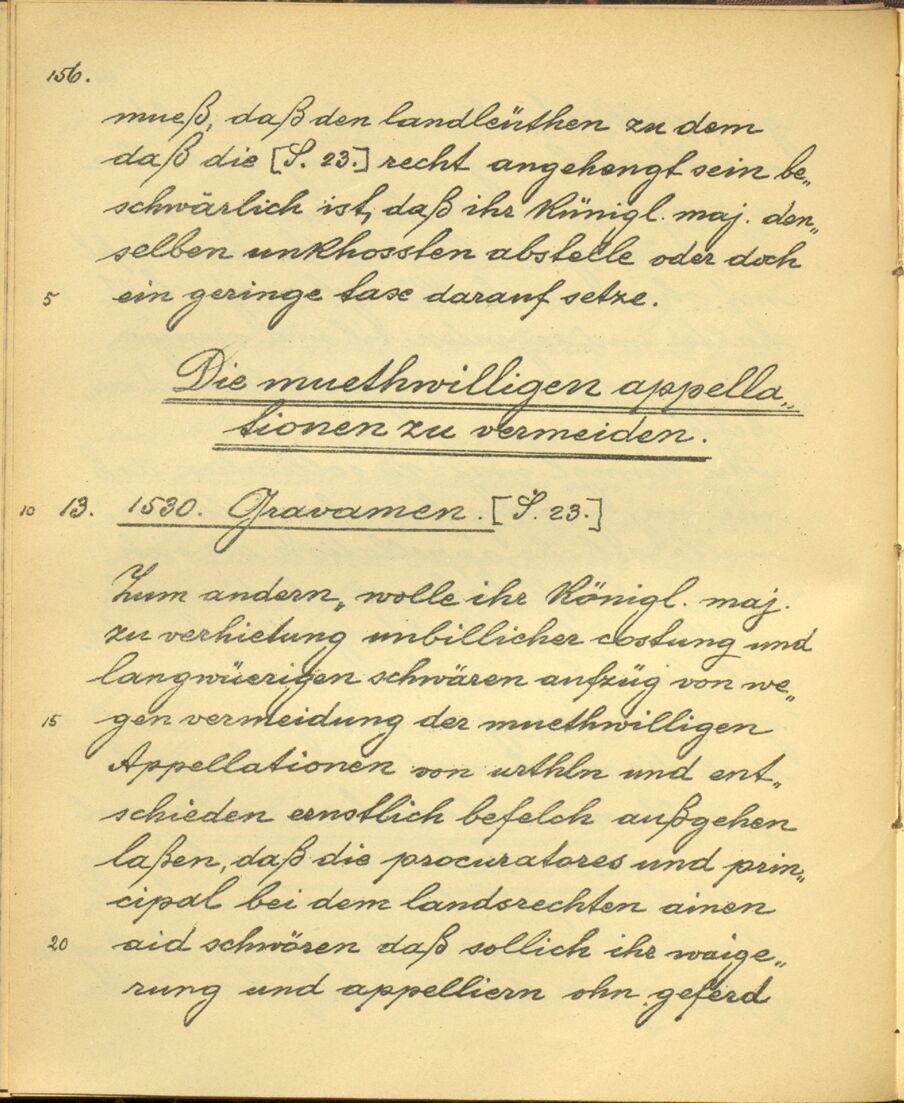 156.
mueß, daß den landleüthen zu dem
daß die [S. 23.] recht angehengt sein be„
schwärlich ist, daß ihr Künigl. maj. den„
selben unkhossten abstelle oder doch
5 ein geringe taxe darauf setze.
Die muethwilligen appella„
tionen zu vermeiden.
10 13. 1530. Gravamen. [S. 23.]
Zum andern„ wolle ihr Königl. maj.
zu verhietung unbillicher costung und
langwüerigen schwären aufzüg von we„
15 gen vermeidung der muethwilligen
Appellationen von urthln und ent„
schieden ernstlich befelch außgehen
laßen, daß die procuratores und prin„
cipal bei dem landsrechten ainen
20 aid schwören daß sollich ihr waige„
rung und appelliern ohn geferd